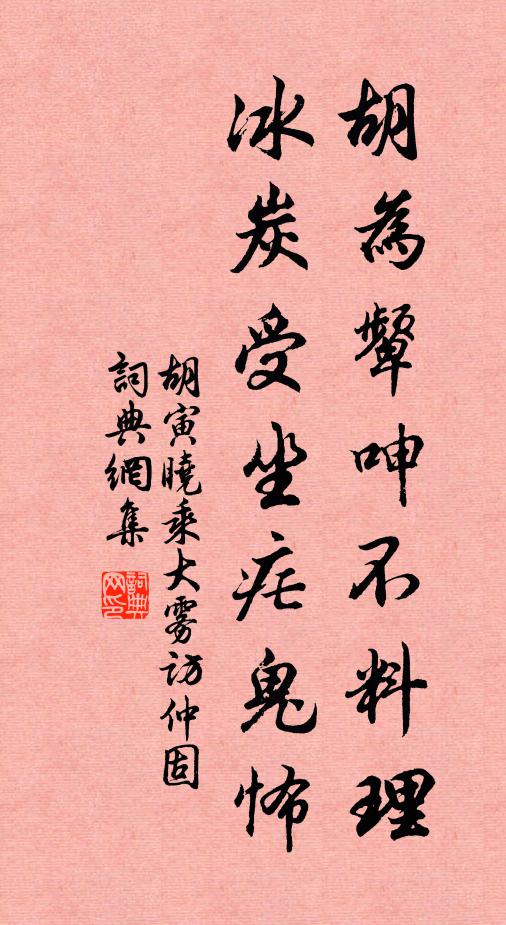 胡為顰呻不料理
冰炭受坐疟鬼怖
胡寅曉乘大霧訪仲固
詞典網集
詞典网印